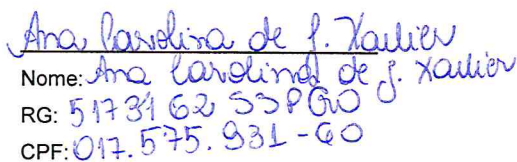 Ana Carolina de J. Xavier
Nome: Ana Carolina de J. Xavier
RG: 5173162 SSPGO
CPF: 017.575.931-60